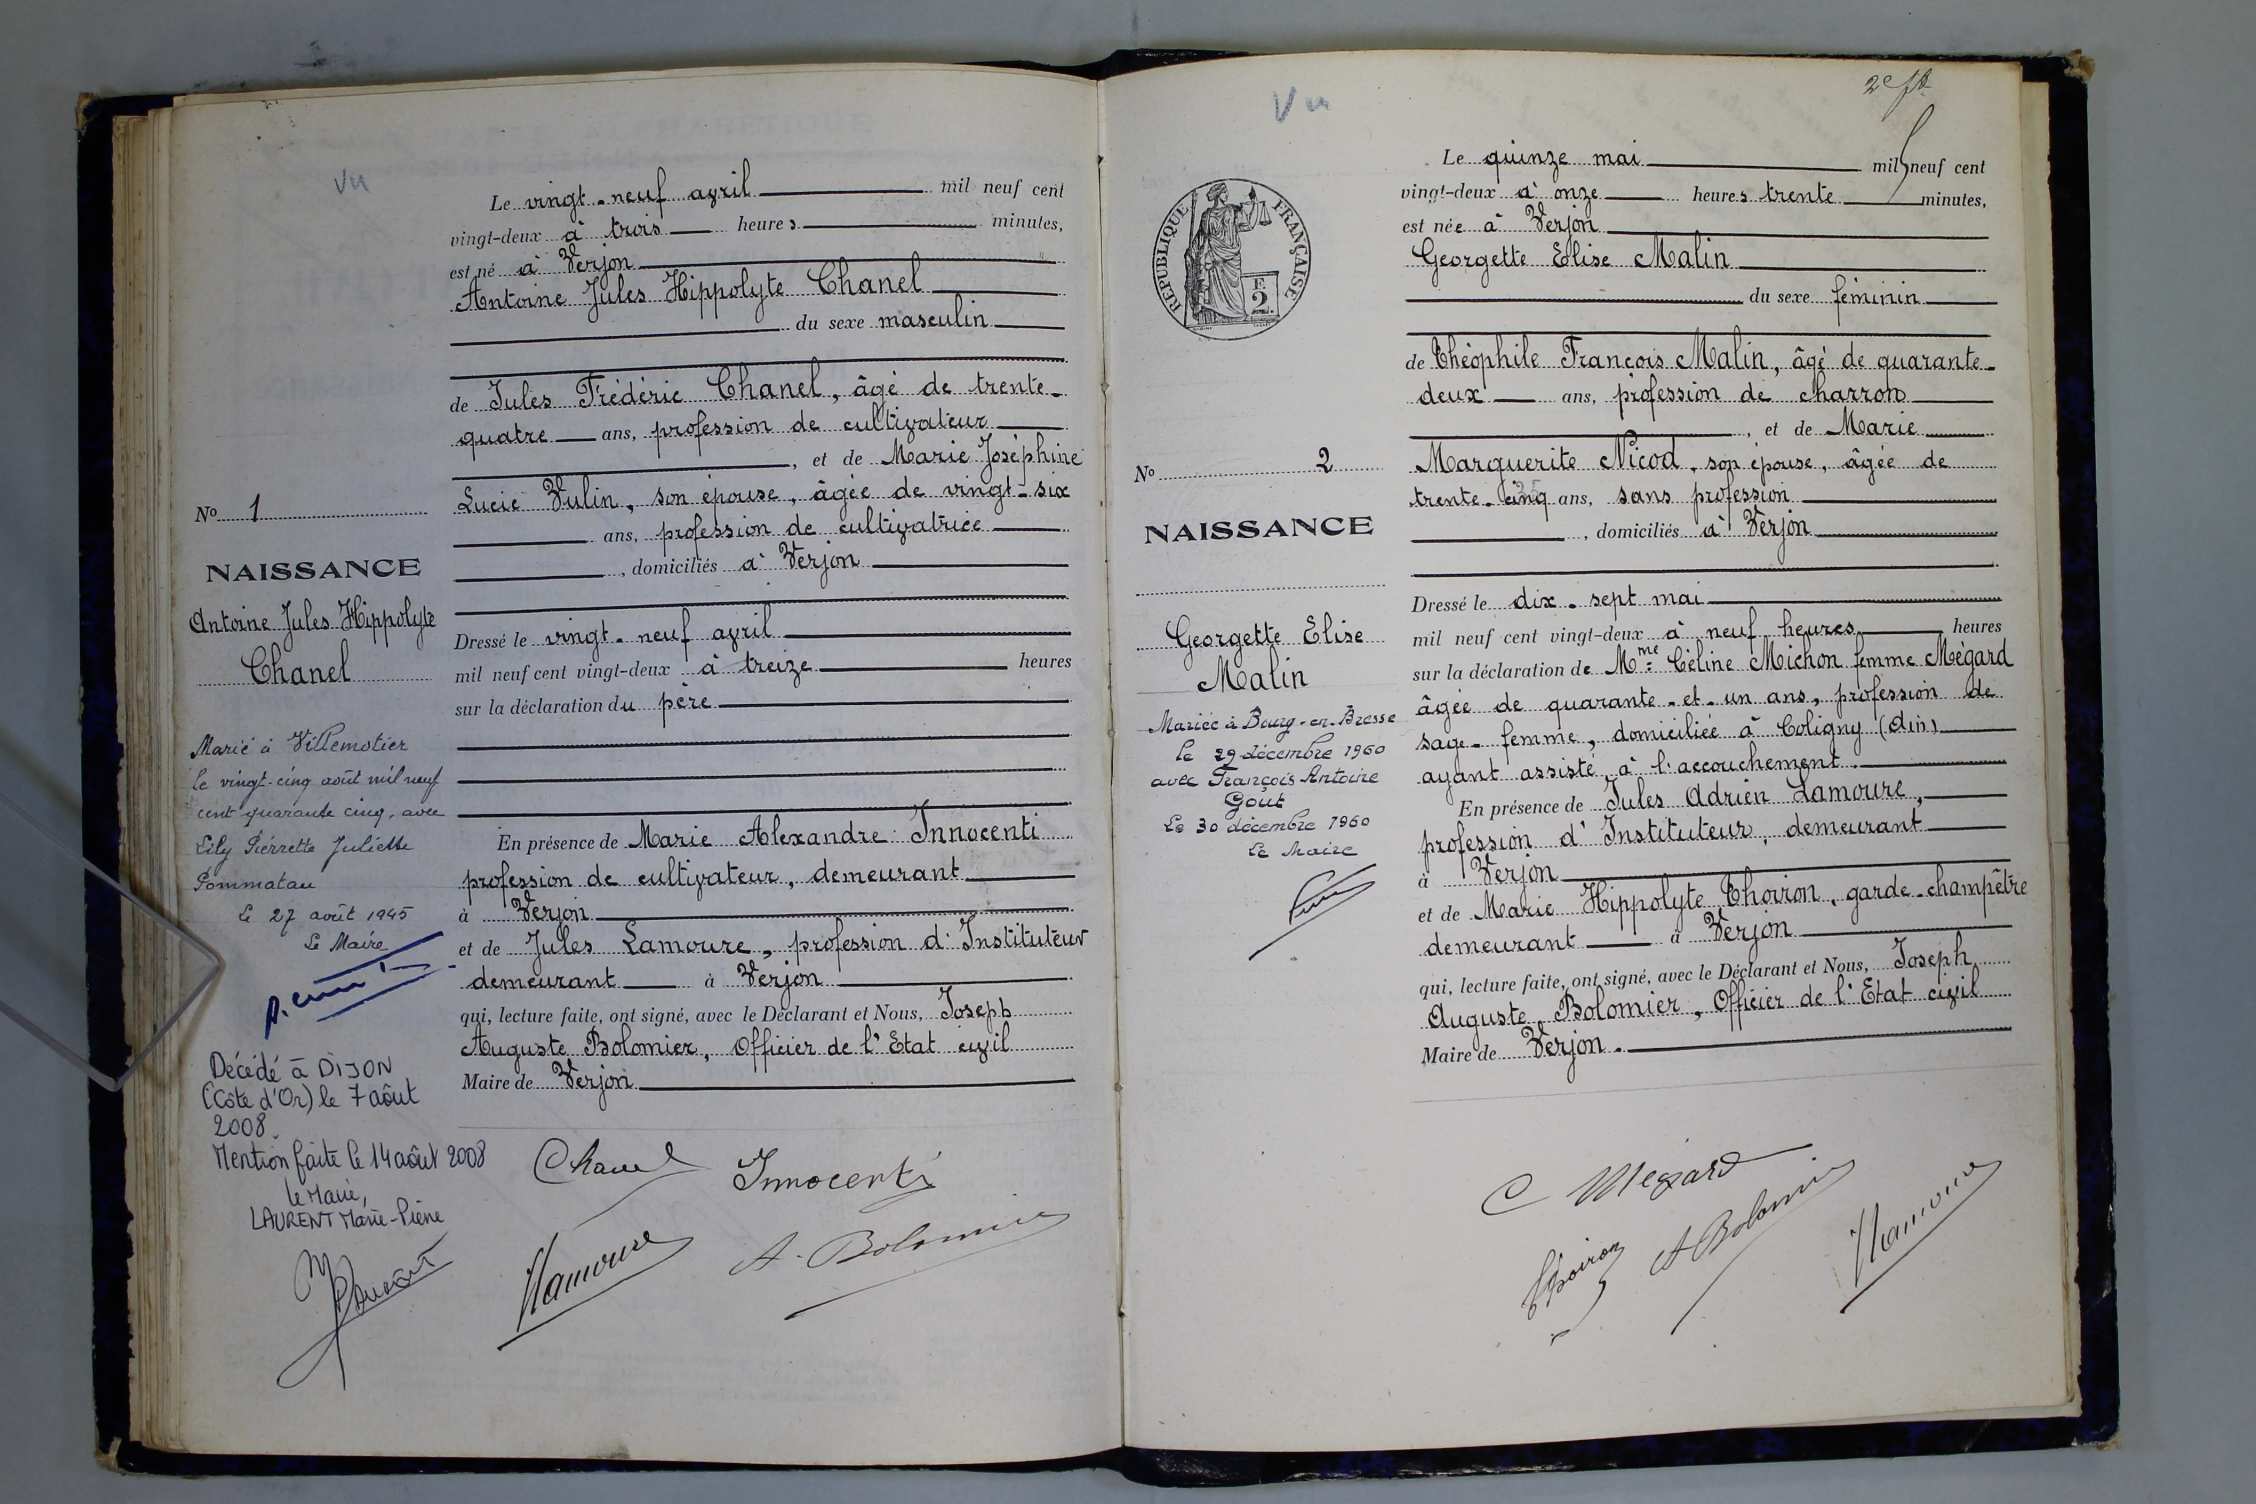 Vu
Le vingt-neuf avril mil neuf cent
vingt-deux à trois heures minutes,
est né à Verjon
Antoine Jules Hippolyte Chanel
du sexe masculin
de Jules Frédéric Chanel, âgé de trente-
quatre ans, profession de cultivateur
, et de Marie Joséphine
Lucie Vulin, son épouse, âgée de vingt-six
ans, profession de cultivatrice
, domiciliés à Verjon
Dressé le vingt-neuf avril
mil neuf cent vingt-deux à treize heures
sur la déclaration du père
En présence de Marie Alexandre Innocenti
profession de cultivateur, demeurant
à Verjon
et de Jules Lamoure, profession d'Instituteur
demeurant à Verjon
qui, lecture faite, ont signé, avec le Déclarant et Nous, Joseph
Auguste Bolomier, Officier de l'Etat civil
Maire de Verjon
No 1
NAISSANCE
Antoine Jules Hippolyte
Chanel
Marié à Villemotier
le vingt-cinq août mil neuf
cent quarante cinq, avec
Lily Pierrette Juliette
Pommatau
Le 27 août 1945
Le Maire
Décédé à DIJON
(Côte d'Or) le 7 août
2008.
Mention faite le 14 août 2008
le Maire,
LAURENT Marie-Pierre
Chanel Innocenti
Lamoure A. Bolomier
Vu
2e
RÉPUBLIQUE FRANÇAISE
F.
2.
Le quinze mai mil neuf cent
vingt-deux à onze heures trente minutes,
est née à Verjon
Georgette Elise Malin
du sexe féminin
de Théophile François Malin, âgé de quarante-
deux ans, profession de charron
, et de Marie
Marguerite Nicod, son épouse, âgée de
trente-cinq ans, sans profession
, domiciliés à Verjon
Dressé le dix-sept mai
mil neuf cent vingt-deux à neuf heures heures
sur la déclaration de Mme Céline Michon femme Mégard
âgée de quarante-et-un ans, profession de
sage-femme, domiciliée à Coligny (Ain)
ayant assisté à l'accouchement.
En présence de Jules Adrien Lamoure,
profession d'Instituteur, demeurant
à Verjon
et de Marie Hippolyte Thoiron, garde-champêtre
demeurant à Verjon
qui, lecture faite, ont signé, avec le Déclarant et Nous, Joseph
Auguste Bolomier, Officier de l'Etat civil
Maire de Verjon.
No 2
NAISSANCE
Georgette Elise
Malin
Mariée à Bourg-en-Bresse
le 29 décembre 1960
avec François Antoine
Gout
Le 30 décembre 1960
Le Maire
C Mégard
Thoiron A Bolomier Lamoure